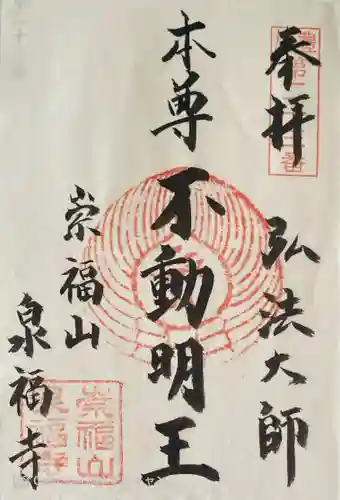 奉拝
弘法大師
本尊
不動明王
崇福山
泉福寺
崇福山
泉福寺